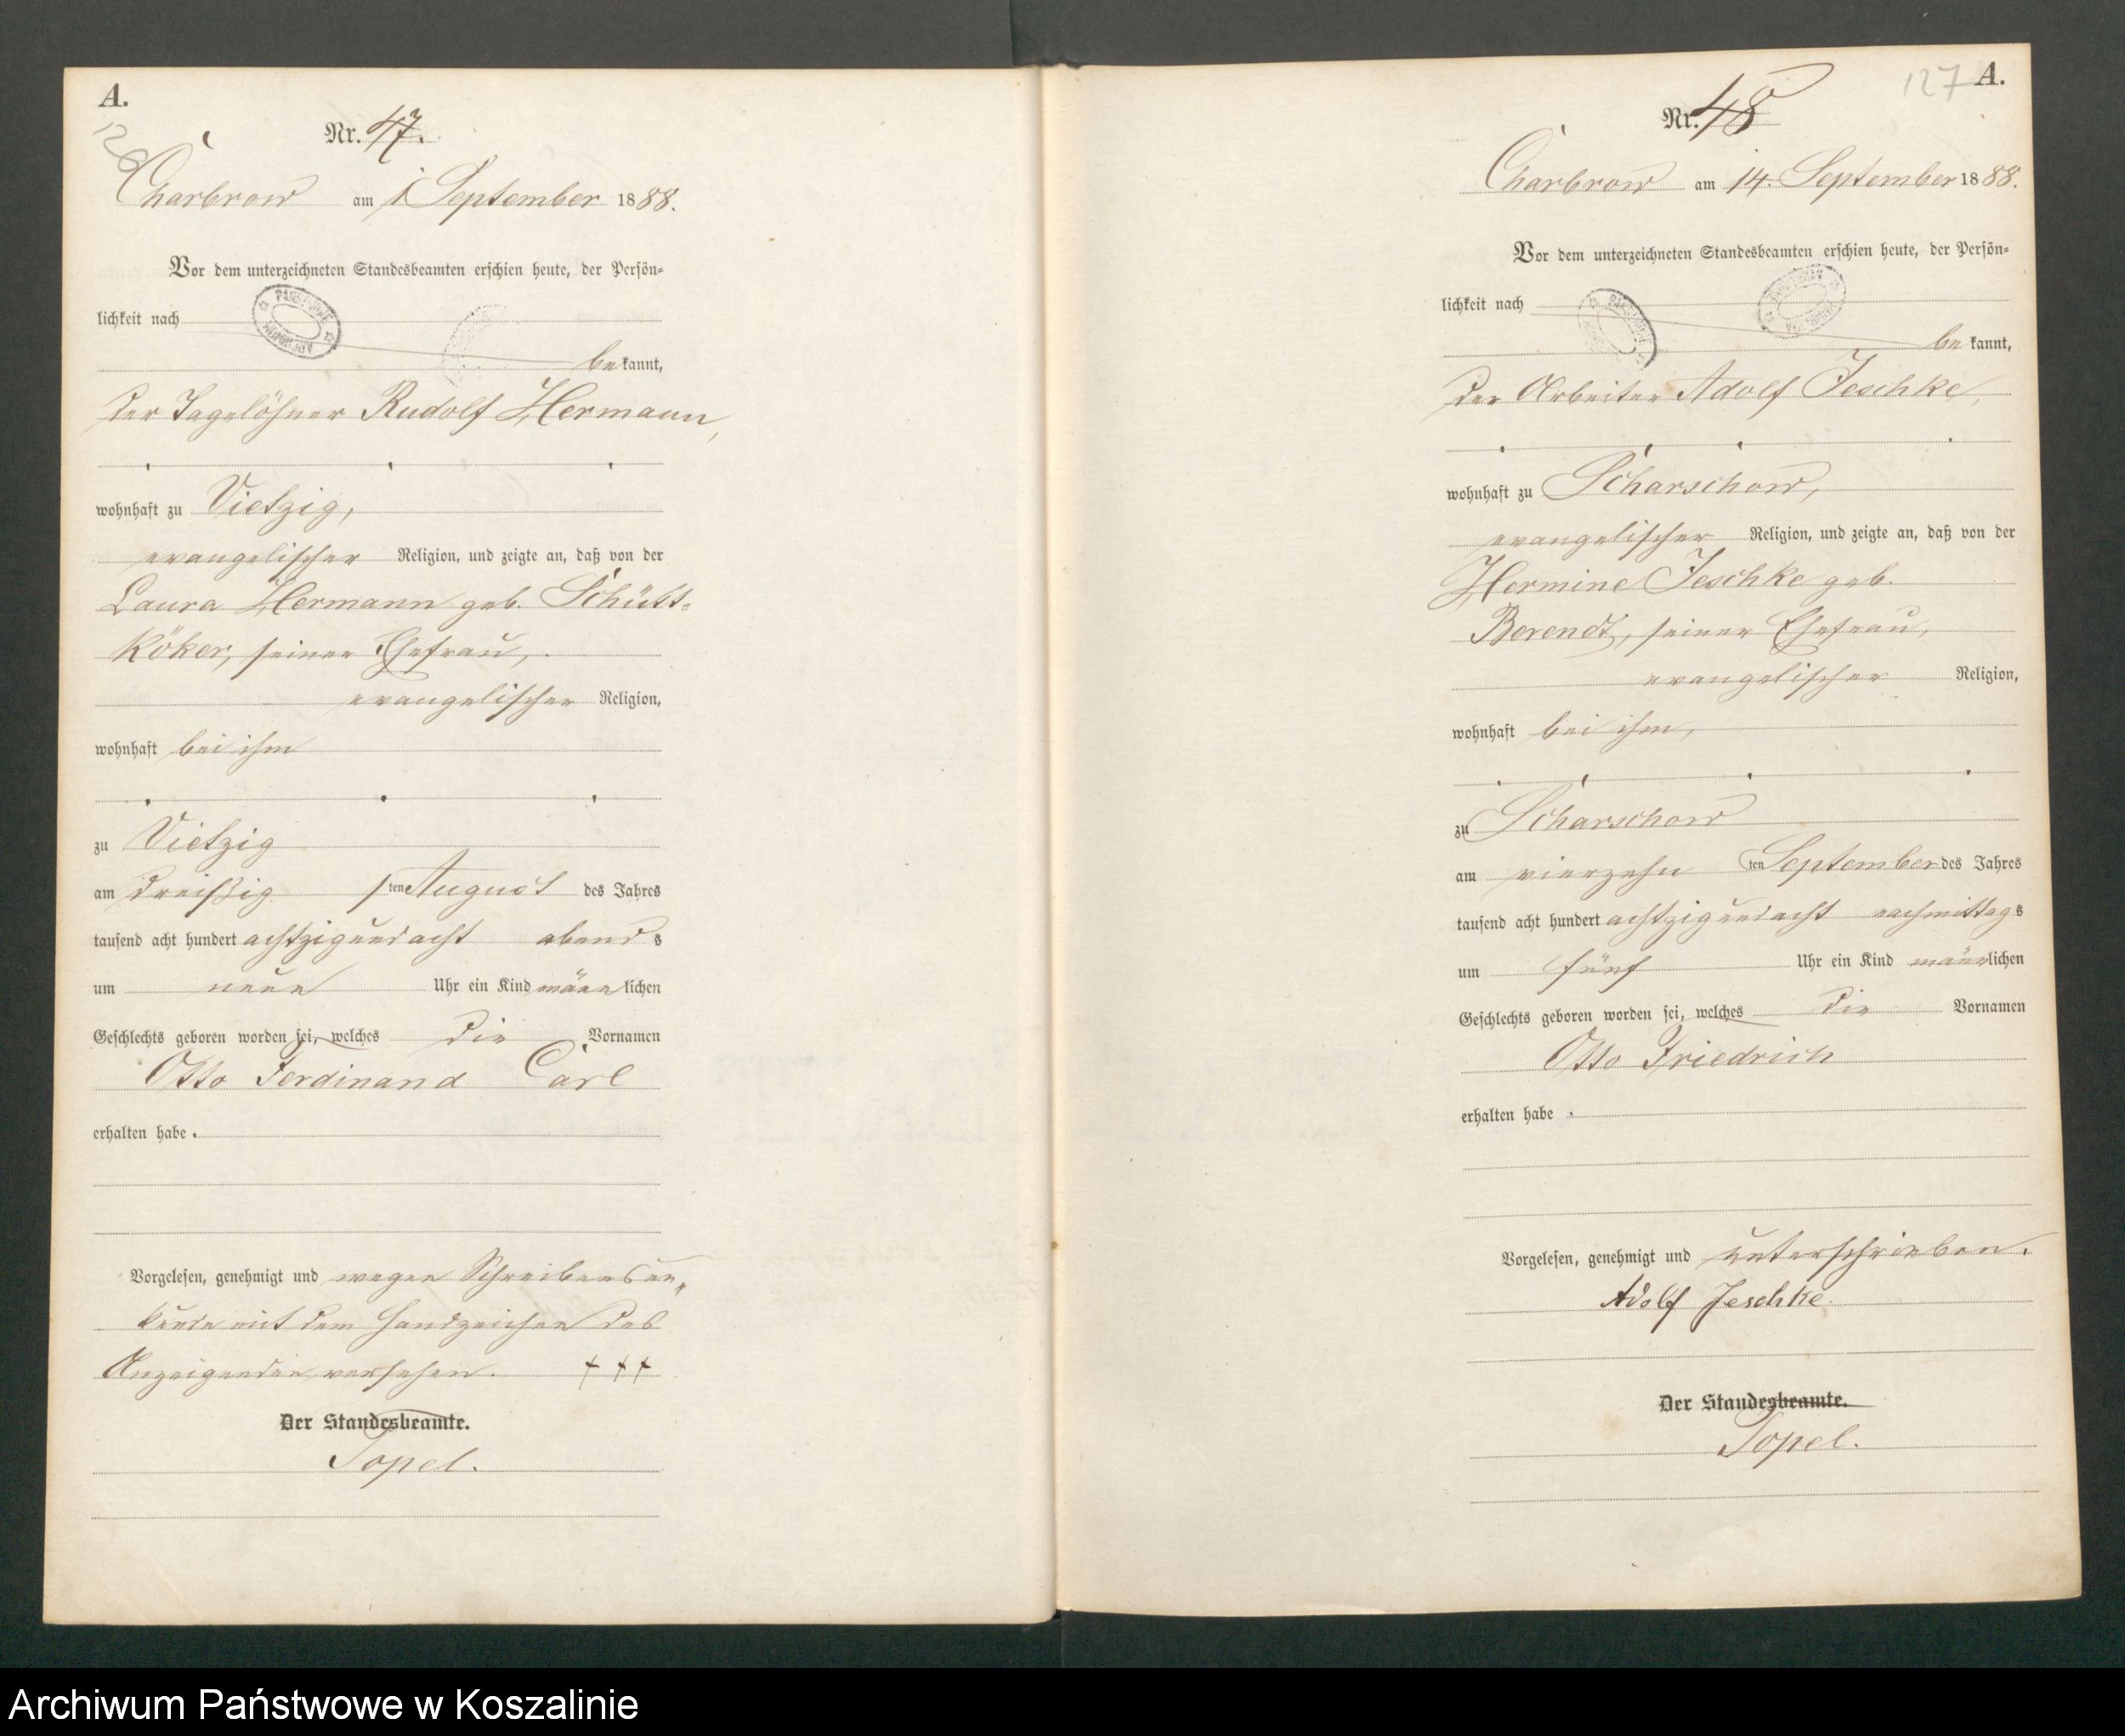 A.
126
Nr. 47.
Charbrow am 1 September 1888.
Vor dem unterzeichneten Standesbeamten erschien heute, der Persön-
lichkeit nach
bekannt,
der Tagelöhner Rudolf Hermann,
wohnhaft zu Vietzig,
evangelischer Religion, und zeigte an, daß von der
Laura Hermann geb. Schütt-
köker, seiner Ehefrau,
evangelischer Religion,
wohnhaft bei ihm
zu Vietzig
am dreißigsten August des Jahres
tausend acht hundert achtzigundacht abends
um neun Uhr ein Kind männlichen
Geschlechts geboren worden sei, welches die Vornamen
Otto Ferdinand Carl
erhalten habe.
Vorgelesen, genehmigt und wegen Schreibensun-
kunde mit dem Handzeichen des
Anzeigenden versehen. + + +
Der Standesbeamte.
Topel.
127 A.
Nr. 48
Charbrow am 14. September 1888.
Vor dem unterzeichneten Standesbeamten erschien heute, der Persön-
lichkeit nach
bekannt,
der Arbeiter Adolf Jeschke,
wohnhaft zu Scharschow,
evangelischer Religion, und zeigte an, daß von der
Hermine Jeschke geb.
Berendt, seiner Ehefrau,
evangelischer Religion,
wohnhaft bei ihm,
zu Scharschow
am vierzehnten September des Jahres
tausend acht hundert achtzigundacht nachmittags
um fünf Uhr ein Kind männlichen
Geschlechts geboren worden sei, welches die Vornamen
Otto Friedrich
erhalten habe.
Vorgelesen, genehmigt und unterschrieben.
Adolf Jeschke.
Der Standesbeamte.
Topel.
Archiwum Państwowe w Koszalinie